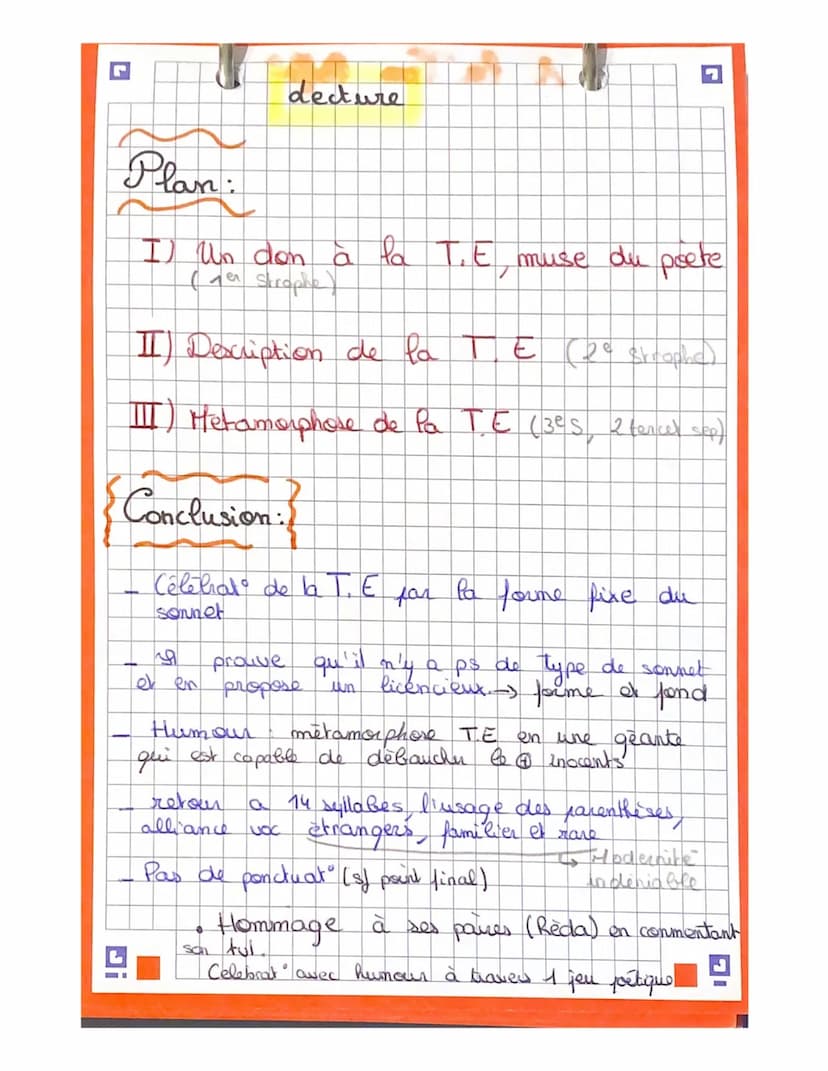 Lecture
Plan :
I) Un don à la T.E, muse du poète
(1er Strophe)
II) Description de la T.E (2e strophe)
III) Métamorphose de la T.E (3e S, 2 tercet sep)
Conclusion :
- Célébrat° de la T.E par la forme fixe du
sonnet
- Il prouve qu'il n'y a ps de type de sonnet
et en propose un licencieux → forme et fond
- Humour : métamorphose T.E en une géante
qui est capable de débaucher le ⊕ inocents
- retour a 14 syllabes, l'usage des parenthèses,
alliance voc étrangers, familier et rare
↳ Modernité
indéniable
- Pas de ponctuat° (sf point final)
• Hommage à ses paires (Rèda) en commentant
son tul.
Celebrat° avec humour à travers 1 jeu poétique